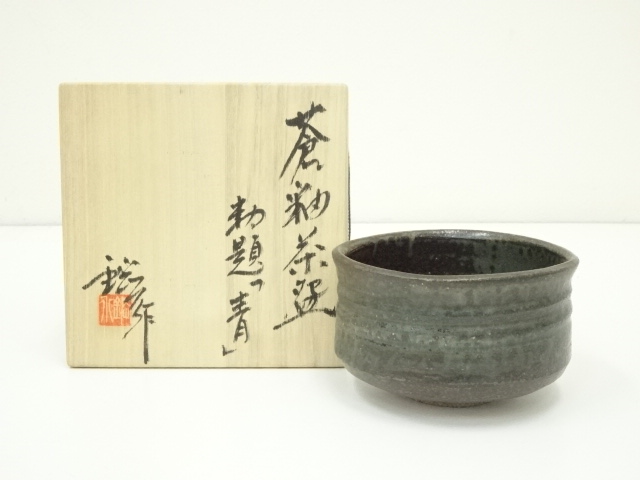 蒼釉茶盌
勅題「青」
作